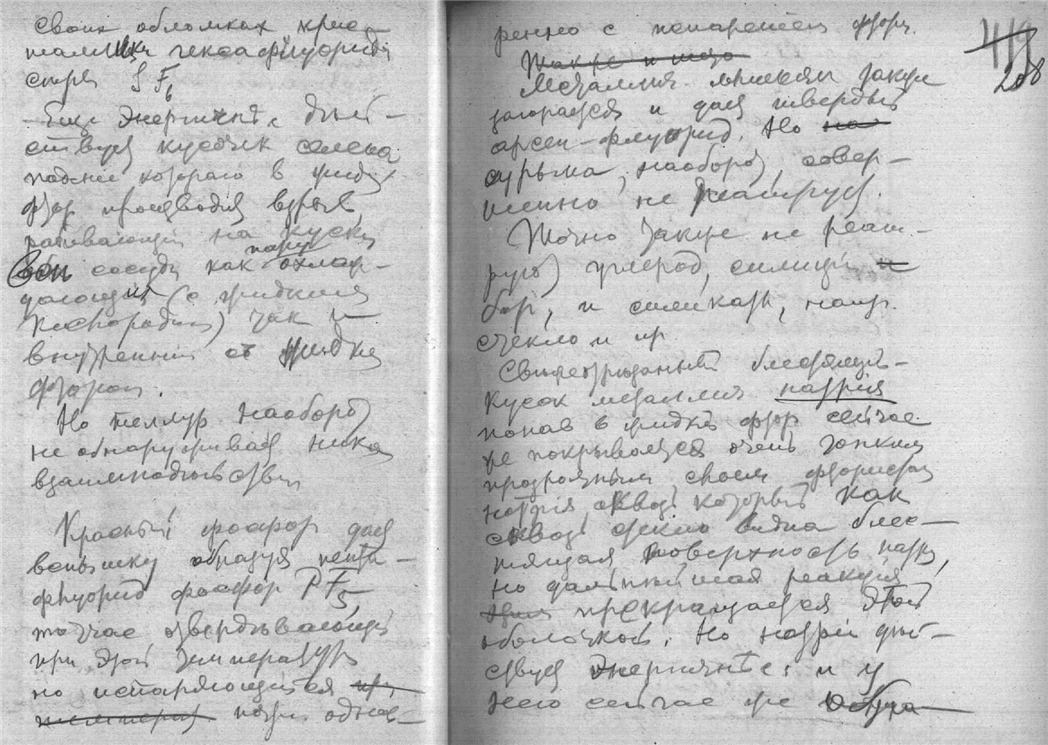 своих обломках крис-
таллики гексафлуорида
серы SF6
Еще энергичнѣе дѣй-
ствуетъ кусочек селена
паденіе котораго в жидк.
фтор производит взрыв,
разбивающій на куски
сосуды как нару охлаж-
дающій (с жидким
кислородом) так и
внутренній съ жидким
фтором.
Но теллур наоборот
не обнаруживает никак.
взаимодѣйствія
Красный фосфор дает
вспышку образуя пента-
флуорид фосфор PF5,
тотчас отвердѣвающій
при этой температурѣ
но испаряющійся
почти однов-
ременно с испареніем фтора.
Также и
Металлич. мышьяк также
загорается и дает твердый
арсен-флуорид. Но
сурьма, наоборот, совер-
шенно не реагирует.
Точно также не реаги-
руют углерод, силицій и
бор, и силикаты, напр.
стекло и пр.
Свѣжеотрѣзанный блестящій
кусок металлич. натрія
попав в жидкій фтор сейчас
же покрывается очень тонким
прозрачным слоем фтористаго
натрія сквозь который как
сквозь стекло видна блес-
тящая поверхность натрія,
но дальнѣйшая реакція
прекращается этой
оболочкой. Но натрій дѣй-
ствует энергичнѣе и у
него сейчас же
208